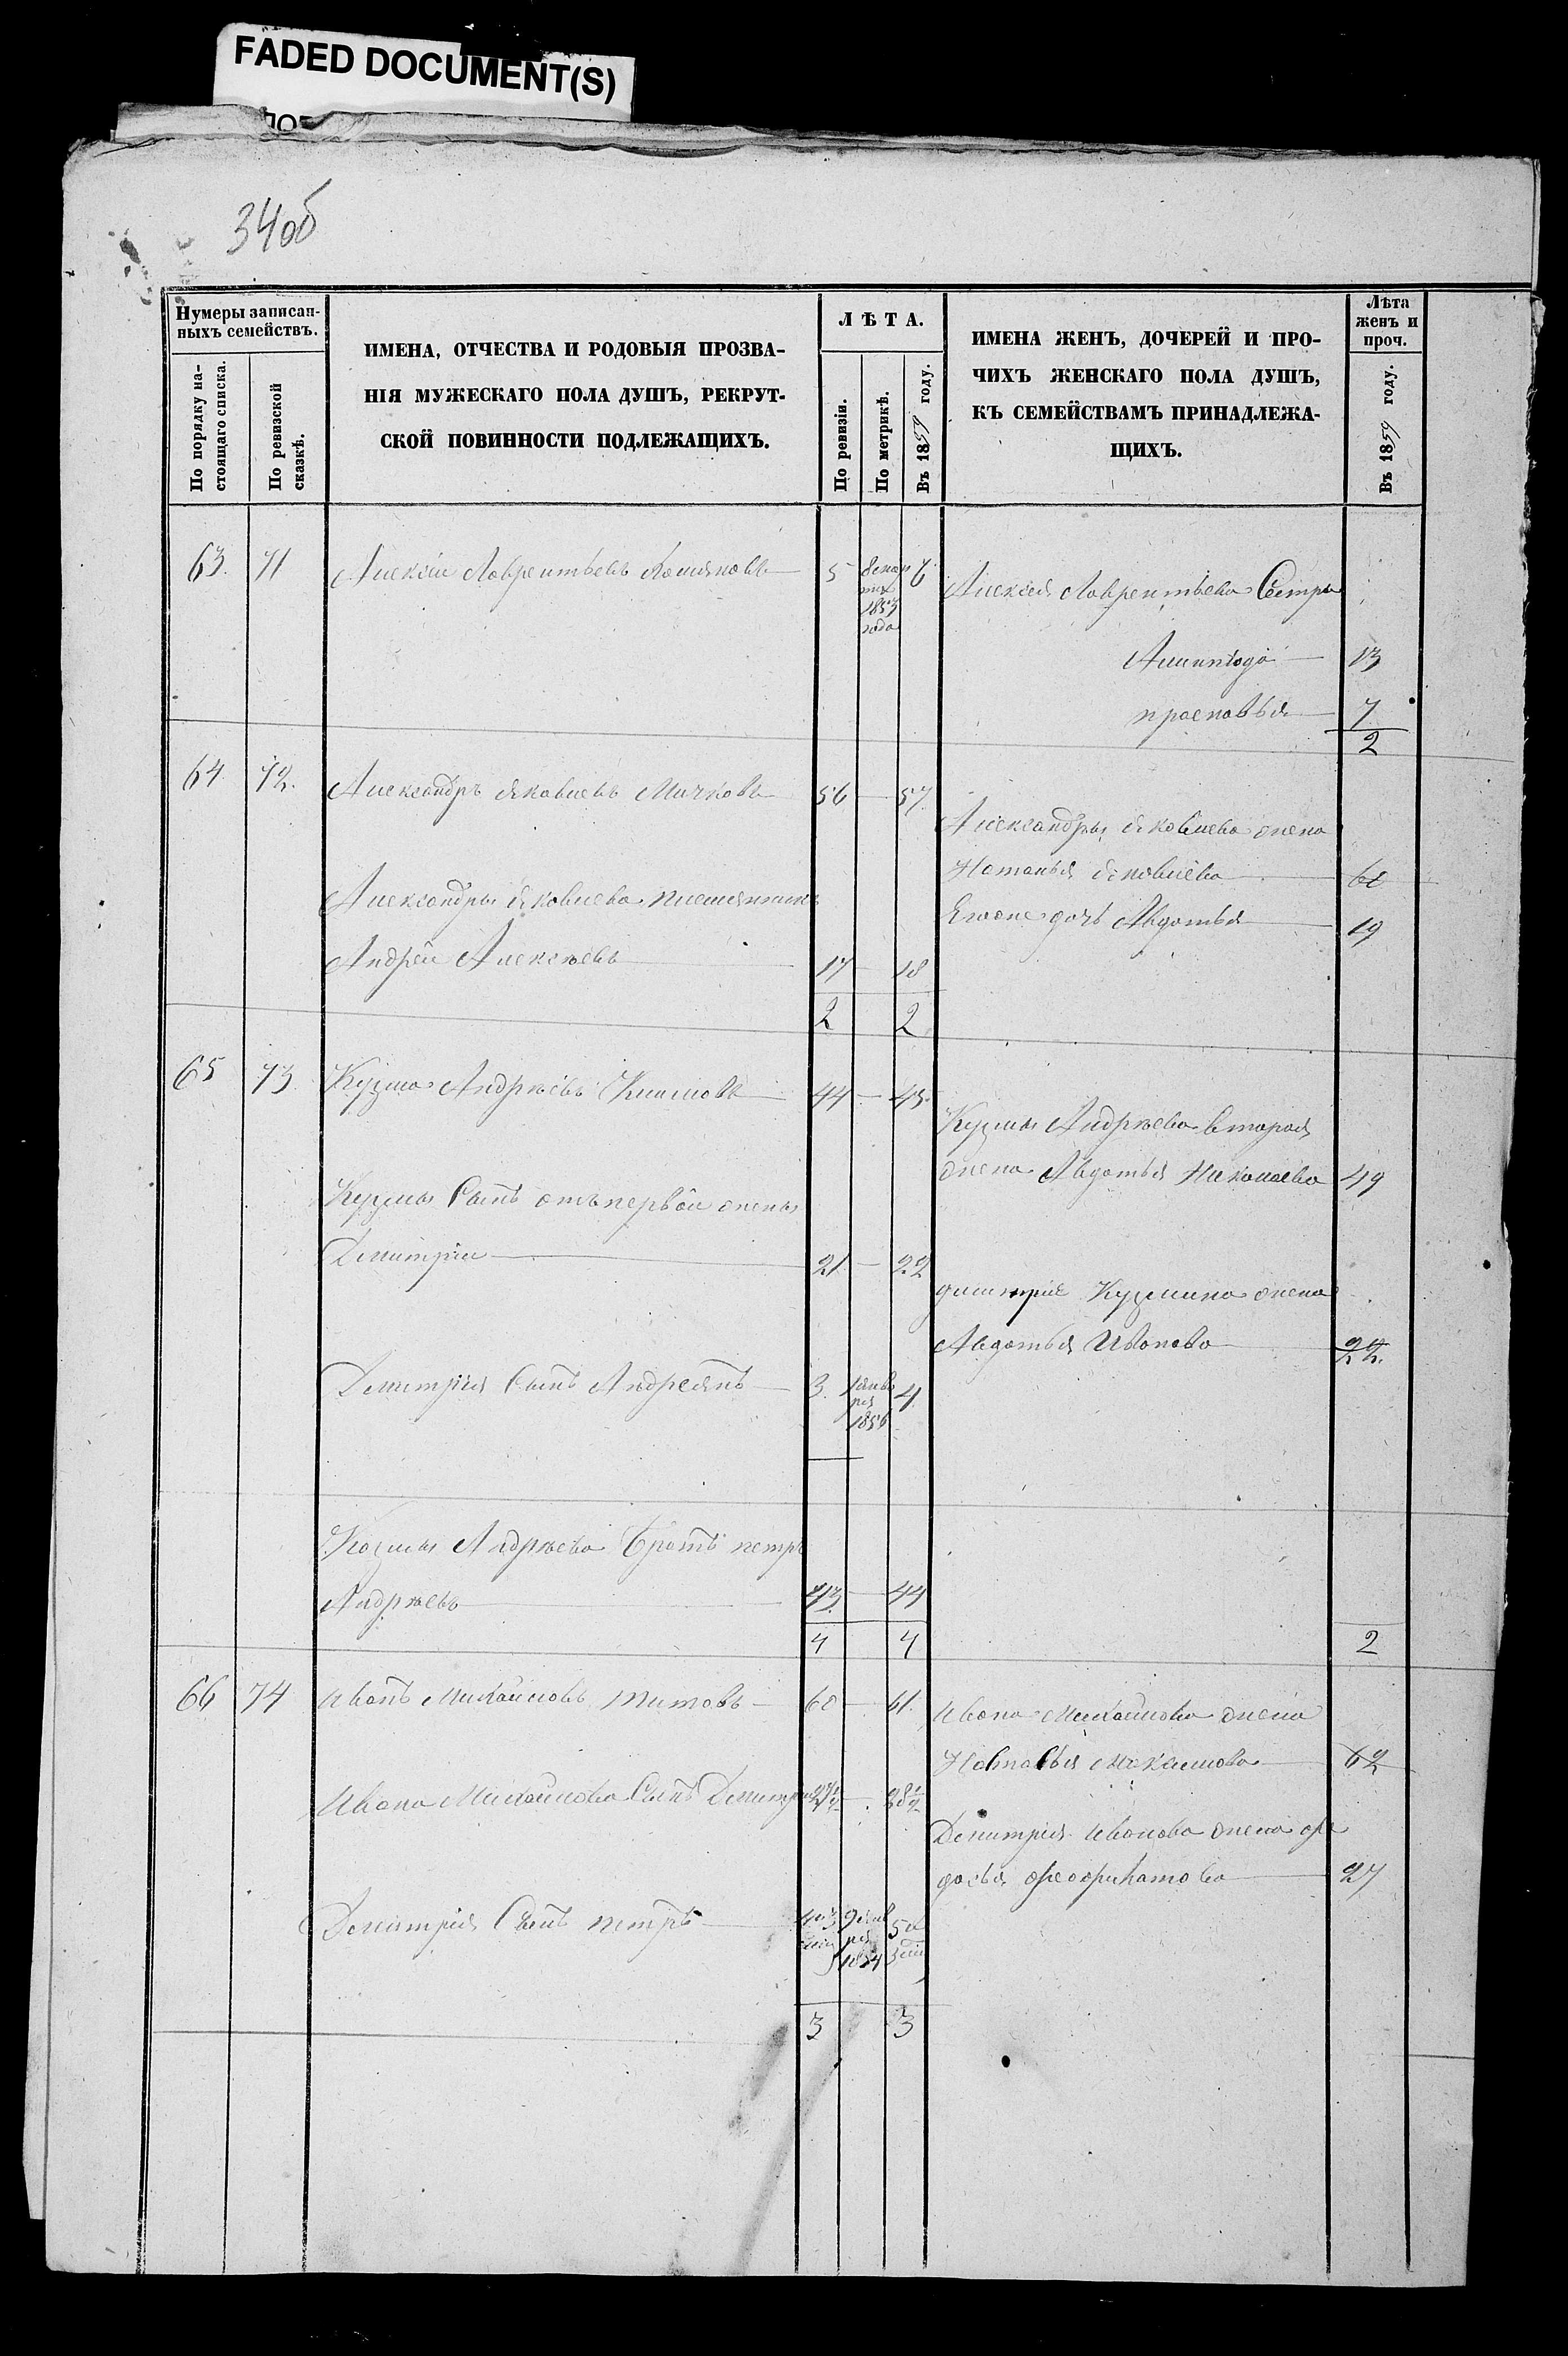 FADED DOCUMENT(S)
34об
Нумеры записан-
ныхъ семействъ.
По порядку на-
стоящаго списка.
По ревизской
сказкѣ.
ИМЕНА, ОТЧЕСТВА И РОДОВЫЯ ПРОЗВА-
НІЯ МУЖЕСКАГО ПОЛА ДУШЪ, РЕКРУТ-
СКОЙ ПОВИННОСТИ ПОДЛЕЖАЩИХЪ.
ЛѢТА.
По ревизіи.
По метрикѣ.
Въ 1859 году.
ИМЕНА ЖЕНЪ, ДОЧЕРЕЙ И ПРО-
ЧИХЪ ЖЕНСКАГО ПОЛА ДУШЪ,
КЪ СЕМЕЙСТВАМЪ ПРИНАДЛЕЖА-
ЩИХЪ.
Лѣта
женъ и
проч.
Въ 1859 году.
63. 71 Алексѣй Лаврентьевъ 5 6
1853
года
Алексея Лаврентьева Сестры
13
прасковья 7
2
64 72. Александръ Яковлевъ Мичковъ 56 57
Александры Яковлева жена
Наталья Яковлева 60
Александры Яковлева племянникъ
Егоже дочь Авдотья 19
Андрей Алексѣевъ 17 18
2 2
65 73. Кузма Андрѣевъ 44 45
Кузмы Андрѣева вторая
жена Авдотья Николаева 49
Кузмы Сынъ отъ первой жены
Дмитрій 21 22
дмитрія Кузмина жена
Авдотья Иванова 22.
Дмитрія Сынъ Андреянъ 3. 1 янва
ря
1856 4
Козмы Андрѣева братъ петръ
Андрѣевъ 43 44
4 4 2
66 74 Иванъ Михайловъ Титовъ 60 61.
Ивана Михайлова жена
Максимова 62
Ивана Михайлова Сынъ Дмитрій 27½ 28½
Дмитрія Иванова жена Фе
досья 27
Дмитрія Сынъ петръ
1854
3 3